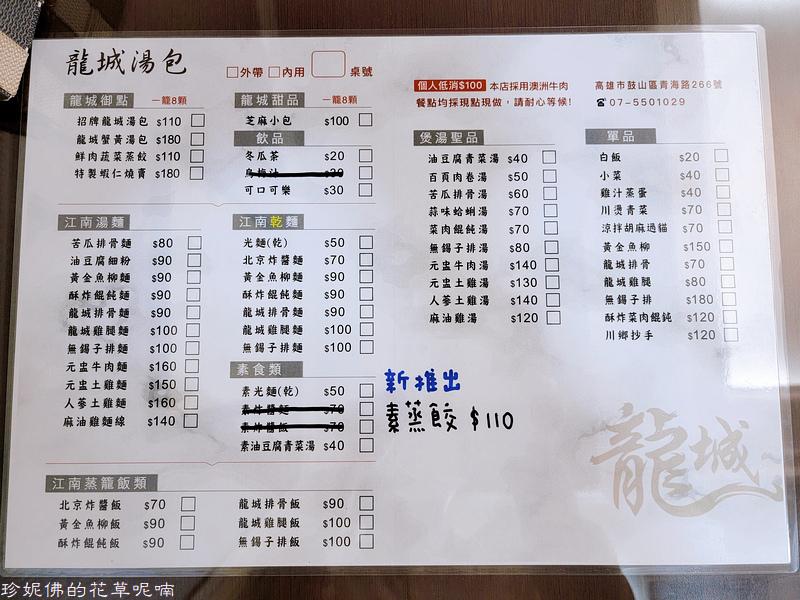 龍城湯包
□外帶 □內用 桌號
龍城御點 一籠8顆
招牌龍城湯包 $110
龍城蟹黃湯包 $180
鮮肉蔬菜蒸餃 $110
特製蝦仁燒賣 $180
龍城甜品 一籠8顆
芝麻小包 $100
飲品
冬瓜茶 $20
烏梅汁 $30
可口可樂 $30
江南湯麵
苦瓜排骨麵 $80
油豆腐細粉 $90
黃金魚柳麵 $90
酥炸餛飩麵 $90
龍城排骨麵 $90
龍城雞腿麵 $100
無錫子排麵 $100
元盅牛肉麵 $160
元盅土雞麵 $150
人蔘土雞麵 $160
麻油雞麵線 $140
江南乾麵
光麵(乾) $50
北京炸醬麵 $70
黃金魚柳麵 $90
酥炸餛飩麵 $90
龍城排骨麵 $90
龍城雞腿麵 $100
無錫子排麵 $100
素食類
素光麵(乾) $50
素炸醬麵 $70
素炸醬飯 $70
素油豆腐青菜湯 $40
江南蒸籠飯類
北京炸醬飯 $70
黃金魚柳飯 $90
酥炸餛飩飯 $90
龍城排骨飯 $90
龍城雞腿飯 $100
無錫子排飯 $100
個人低消$100 本店採用澳洲牛肉
餐點均採現點現做，請耐心等候!
高雄市鼓山區青海路266號
☎07-5501029
煲湯聖品
油豆腐青菜湯 $40
百頁肉卷湯 $50
苦瓜排骨湯 $60
蒜味蛤蜊湯 $70
菜肉餛飩湯 $70
無錫子排湯 $80
元盅牛肉湯 $140
元盅土雞湯 $130
人蔘土雞湯 $140
麻油雞湯 $120
單品
白飯 $20
小菜 $40
雞汁蒸蛋 $40
川燙青菜 $70
涼拌胡麻過貓 $70
黃金魚柳 $150
龍城排骨 $70
龍城雞腿 $80
無錫子排 $180
酥炸菜肉餛飩 $120
川鄉抄手 $120
新推出
素蒸餃 $110
龍城
珍妮佛的花草呢喃